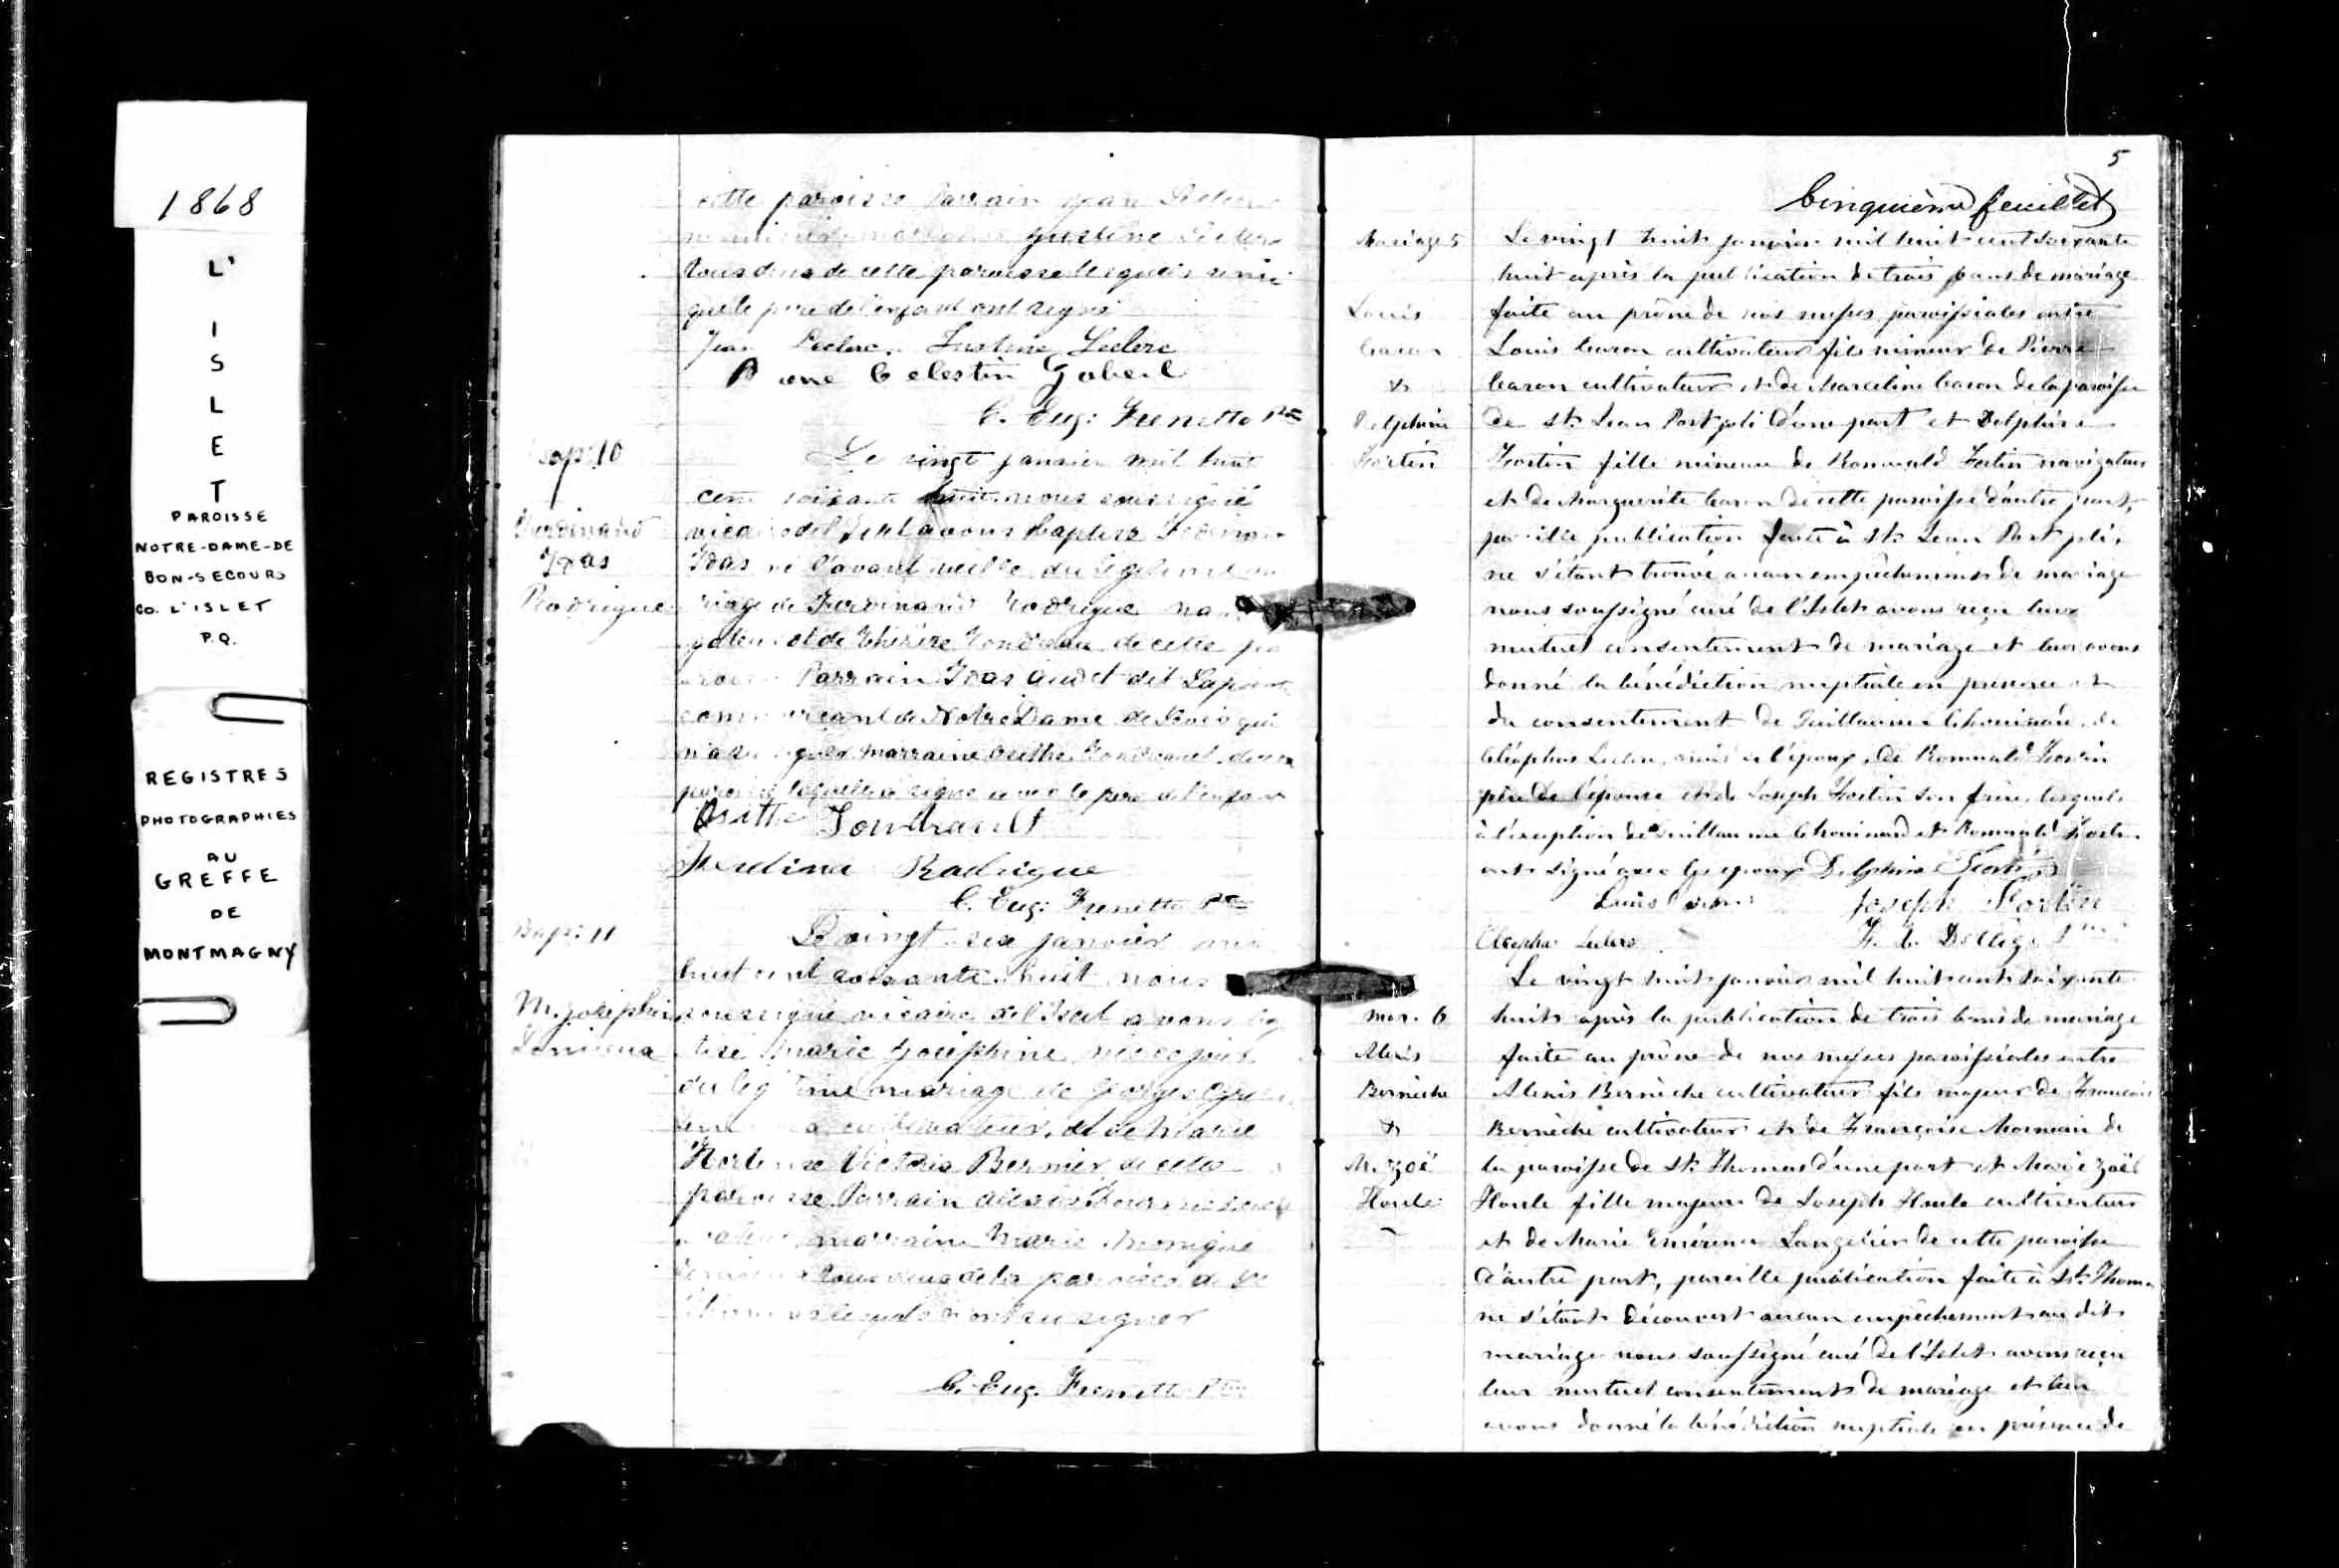 1868
L'
I
S
L
E
T
PAROISSE
NOTRE-DAME-DE
BON-SECOURS
CO. L'ISLET
P.Q.
REGISTRES
PHOTOGRAPHIES
AU
GREFFE
DE
MONTMAGNY
cette paroisse Parrain Jean Leclerc
Justine Leclerc
tous deux de cette paroisse lesquels ainsi
que le père de l'enfant ont signé
Jean Leclerc. Justine Leclerc
Celestin Gobeil
C. Eug: Frenette Ptre
Bap: 10
Ferdinand
Rodrigue
Le vingt janvier mil huit
cent soixante huit nous soussigné
vicaire de l'Islet avons baptisé Ferdinand
né l'avant veille du légitime ma
riage de Ferdinand Rodrigue navi
gateur et de Thérèse de cette pa
roisse Parrain Audet dit Lapointe
commerçant de Notre Dame de qui
n'a su signer marraine Osithe de cette
paroisse laquelle a signé avec le père de l'enfant
Osithe
Ferdina Radrigue
C. Eug: Frenette Ptre
Bap: 11
M. Josephine
Lemieux
Le vingt-six janvier mil
huit cent soixante huit nous
soussigné vicaire de l'Islet avons bap
tisé Marie Joséphine née ce jour
du légitime mariage de Georges
cultivateur, et de Marie
Hortense Victoria Bernier de cette
paroisse Parrain
marraine Marie Monique
Lemieux tous deux de la paroisse de St
lesquels n'ont su signer
C. Eug. Frenette Ptre
5
Cinquième feuillet
Mariage 5
Louis
Caron
&
Delphine
Fortin
Le vingt huit janvier mil huit cent soixante
huit après la publication de trois bans de mariage
faite au prône de nos messes paroissiales entre
Louis Caron cultivateur fils mineur de Pierre
Caron cultivateur et de Marceline Caron de la paroisse
de St. Jean Port joli d'une part et Delphine
Fortin fille mineure de Romuald Fortin navigateur
et de Marguerite Caron de cette paroisse d'autre part,
pareille publication faite à St. Jean Port joli,
ne s'étant trouvé aucun empêchement de mariage
nous soussigné curé de l'Islet avons reçu leur
mutuel consentement de mariage et leur avons
donné la bénédiction nuptiale en présence et
du consentement de Guillaume Chouinard, de
Cléophas Leclerc, amis de l'époux, de Romuald Fortin
père de l'épouse et de Joseph Fortin son frère, lesquels
à l'exception de Guillaume Chouinard et Romuald Fortin
ont signé avec les époux Delphine Fortin
Louis Caron Joseph Fortin
Cleophas Leclerc F. X. Delâge Ptre
mar. 6
Alexis
Bernèche
&
M. Zoé
Houle
Le vingt huit janvier mil huit cent soixante
huit après la publication de trois bans de mariage
faite au prône de nos messes paroissiales entre
Alexis Bernèche cultivateur fils majeur de François
Bernèche cultivateur et de Françoise Morneau de
la paroisse de St. Thomas d'une part et Marie Zoël
Houle fille majeure de Joseph Houle cultivateur
et de Marie Emérence Langelier de cette paroisse
d'autre part, pareille publication faite à St. Thomas
ne s'étant découvert aucun empêchement au dit
mariage nous soussigné curé de l'Islet avons reçu
leur mutuel consentement de mariage et leur
avons donné la bénédiction nuptiale en présence de